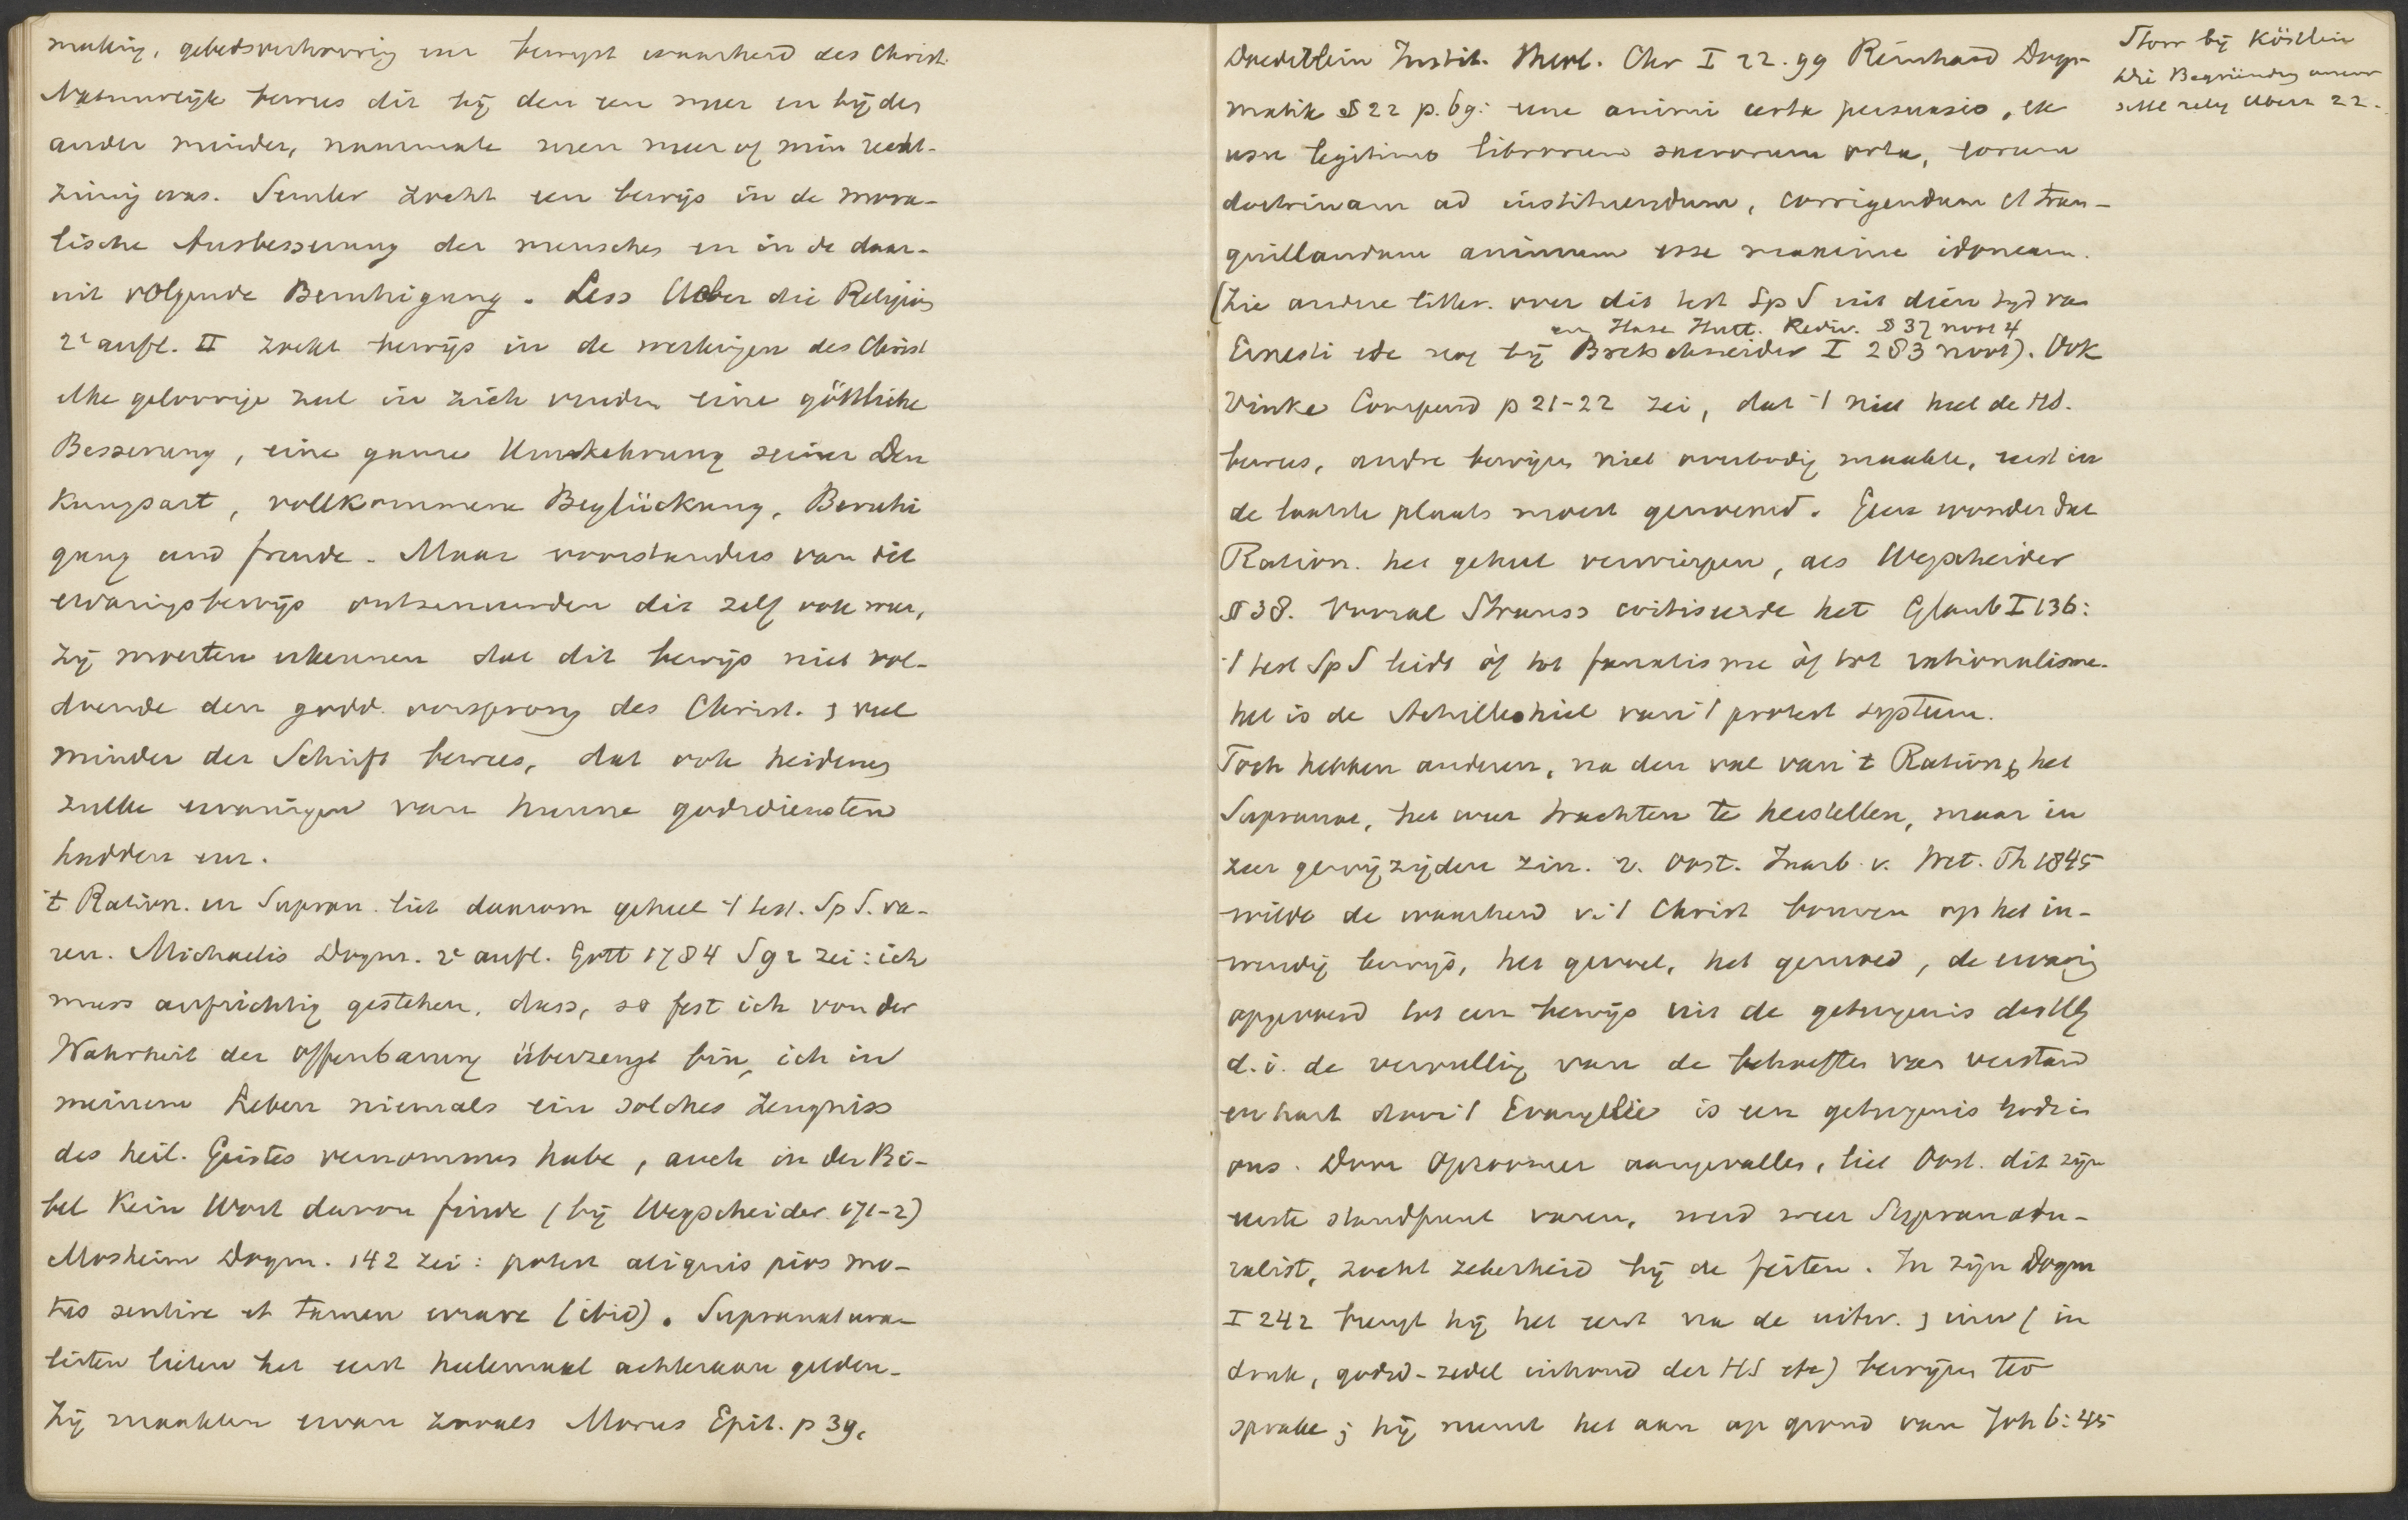 making, gebedsverhooring enz bewijst waarheid des Christ.
Natuurlijk bewees dit bij den een meer en bij den
ander minder, naarmate men meer of min recht-
zinnig was. Semler zocht een bewijs in de mora-
lische Ausbesserung der menschen en in de daar-
uit volgende Beruhigung. Less Ueber die Religion
2e aufl. II zocht bewijs in de werkingen des Christ
elke geloovige zal in zich vinden eine göttliche
Besserung, eine ganze Umkehrung seiner Den
kungsart, vollkommene Beglückung, Beruhi
gung und freude. Maar voorstanders van dit
ervaringsbewijs ontzenuwden dit zelf ook weer,
zij moesten erkennen dat dit bewijs niet vol-
doende den godd. oorsprong des Christ. & veel
minder der Schrift bewees, dat ook heidenen
zulke ervaringen van hunne godsdiensten
hadden enz.
't Ration. en Supran. liet daarom geheel 't test. Sp S. va-
ren. Michaelis Dogm. 2e aufl. Gött 1784 S 92 zei: ich
muss aufrichtig gestehen, dass, so fest ich von der
Wahrheit der Offenbarung überzeugt bin, ich in
meinem Leben niemals ein solches Zeugniss
des heil. Geistes vernommen habe, auch in der Bi-
bel kein Wort davon finde (bij Wegscheider 171-2)
Mosheim Dogm. 142 zei: potest aliquis pios mo-
tus sentire et tamen errare (ibid). Supranatura-
listen lieten het eerst heelemaal achteraan gelden.
Zij maakten ervan zooals Morus Epit. p 39,
Doederlein Instit. theol. Chr I 22. 99 Reinhard Dog-
matik § 22 p. 69: une animi certa persuasio, ex
usu legitimo librorum sacrorum orta, eorum
doctrinam ad instituendum, corrigendum et tran-
quillandum animum esse maxime idoneam.
(zie andere litter. over dit test Sp S uit dien tijd van
en Hase Hutt. Rediv. § 37 noot 4
Ernesti etc nog bij Bretschneider I 283 noot). Ook
Vinke Compend p 21-22 zei, dat 't niet heel de HS.
bewees, andre bewijzen niet overbodig maakte, eerst in
de laatste plaats moest genoemd. Geen wonder dat
Ration. het geheel verwierpen, als Wegscheider
§ 38. Vooral Strauss critiseerde het Glaub I 136:
't test Sp S leidt òf tot fanatisme òf tot rationalisme.
het is de Achilleshiel van 't protest systeem.
Toch hebben anderen, na den val van 't Ration & het
Supranat, het weer trachten te herstellen, maar in
zeer gewijzigden zin. v. Oost. Jaarb v. Wet. Th 1845
wilde de waarheid v. 't Christ bouwen op het in-
wendig bewijs, het gevoel, het gemoed, de ervaring
opgevoerd tot een bewijs uit de getuigenis des HG
d.i. de vervulling van de behoeften van verstand
en hart door 't Evangelie is een getuigenis Gods in
ons. Door Opzoomer aangevallen, liet Oost. dit zijn
eerste standpunt varen, werd meer Supranatu-
ralist, zocht zekerheid bij de feiten. In zijn Dogm
I 242 brengt hij het eerst na de uitw. & inw (in
druk, godsd-zedel inhoud der HS etc) bewijzen ter
sprake; hij neemt het aan op grond van Joh 6:45
Storr bij Köstlin
Die Begründung unserer
sittl relig Ueberz 22.